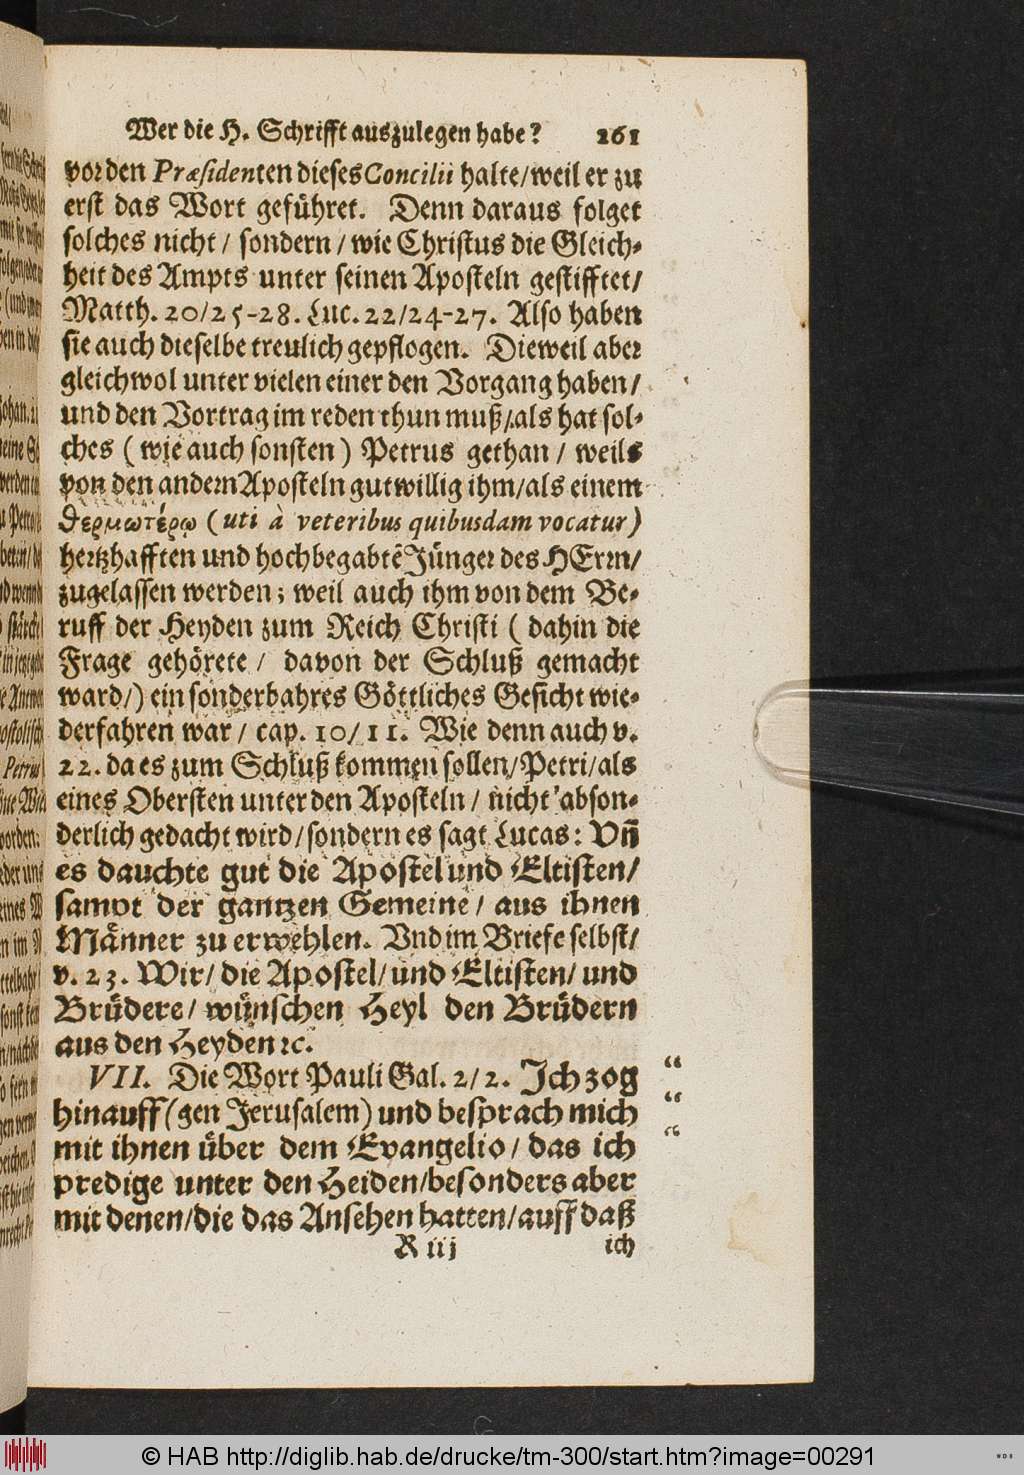 Wer die H. Schrifft auszulegen habe? 261
vor den Præsidenten dieses Concilii halte/weil er zu
erst das Wort geführet. Denn daraus folget
solches nicht / sondern / wie Christus die Gleich-
heit des Ampts unter seinen Aposteln gestifftet/
Matth. 20/25-28. Luc. 22/24-27. Also haben
sie auch dieselbe treulich gepflogen. Dieweil aber
gleichwol unter vielen einer den Vorgang haben/
und den Vortrag im reden thun muß/als hat sol-
ches ( wie auch sonsten ) Petrus gethan / weils
von den andern Aposteln gutwillig ihm/als einem
θερμωτέρῳ (uti à veteribus quibusdam vocatur)
hertzhafften und hochbegabtē Jünger des HErrn/
zugelassen werden; weil auch ihm von dem Be-
ruff der Heyden zum Reich Christi ( dahin die
Frage gehörete / davon der Schluß gemacht
ward/) ein sonderbahres Göttliches Gesicht wie-
derfahren war / cap. 10/11. Wie denn auch v.
22. da es zum Schluß kommen sollen/Petri/als
eines Obersten unter den Aposteln / nicht abson-
derlich gedacht wird/sondern es sagt Lucas: Vñ
es dauchte gut die Apostel und Eltisten/
sampt der gantzen Gemeine / aus ihnen
Männer zu erwehlen. Vnd im Briefe selbst/
v. 23. Wir/ die Apostel/ und Eltisten/ und
Brüdere/ wünschen Heyl den Brüdern
aus den Heyden ꝛc.
VII. Die Wort Pauli Gal. 2/2. Jch zog “
hinauff (gen Jerusalem) und besprach mich “
mit ihnen über dem Evangelio/ das ich “
predige unter den Heiden/besonders aber
mit denen/die das Ansehen hatten/auff daß
R iij ich
© HAB http://diglib.hab.de/drucke/tm-300/start.htm?image=00291